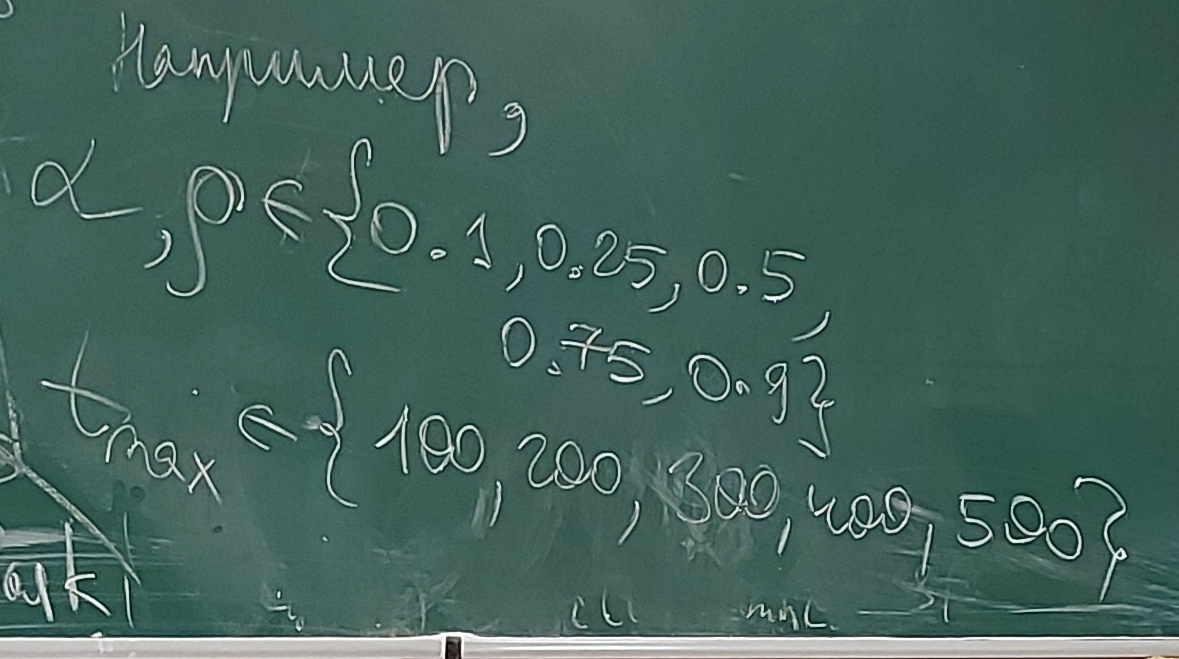 Например,
α, ρ ∈ {0.1, 0.25, 0.5,
0.75, 0.9}
t_max ∈ {100, 200, 300, 400, 500}